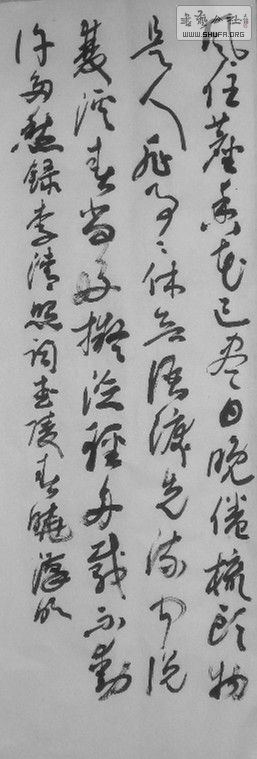 WWW.SHUFA.ORG
風住塵香花已盡日晚倦梳頭物
是人非事〻休欲語淚先流聞說
雙溪春尚好擬泛輕舟載不動
许多愁錄李清照詞武陵春